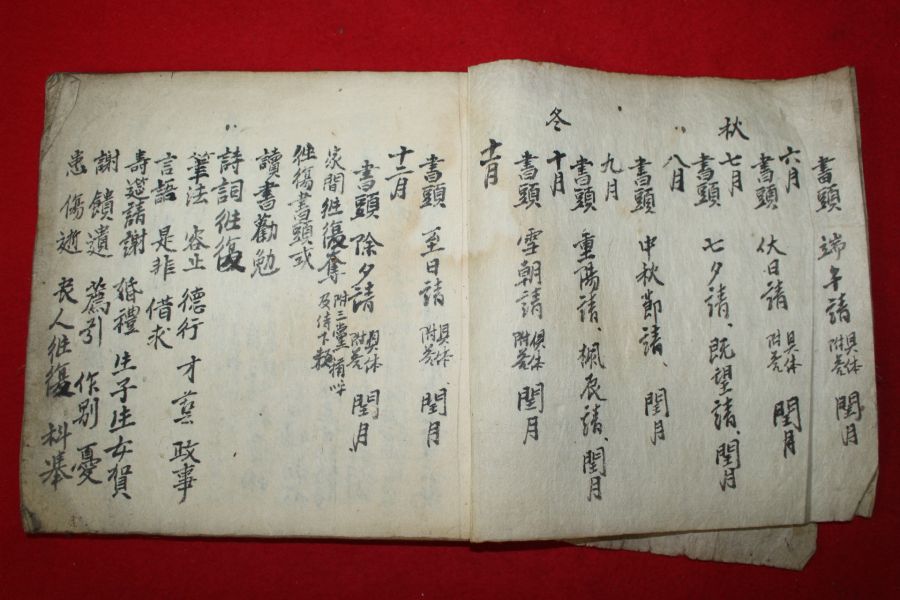 書頭 端午請 具体附答 閏月
六月
書頭 伏日請 具体附答 閏月
秋
七月
書頭 七夕請、既望請、閏月
八月
書頭 中秋節請、閏月
九月
書頭 重陽請、楓辰請、閏月
冬
十月
書頭 雪朝請 俱体附答 閏月
十一月
書頭 至日請 具体附答、閏月
十二月
書頭 除夕請 具体附答 閏月
家間徃復套 附三黨稱呼及侍下類
徃復書頭或
讀書勸勉
詩詞徃復
筆法 容止 德行 才藝 政事
言語 是非 借求
壽筵請謝 婚禮 生子生女賀
謝饋遺 薦引 作別 憂
患 傷逝 丧人徃復 科舉